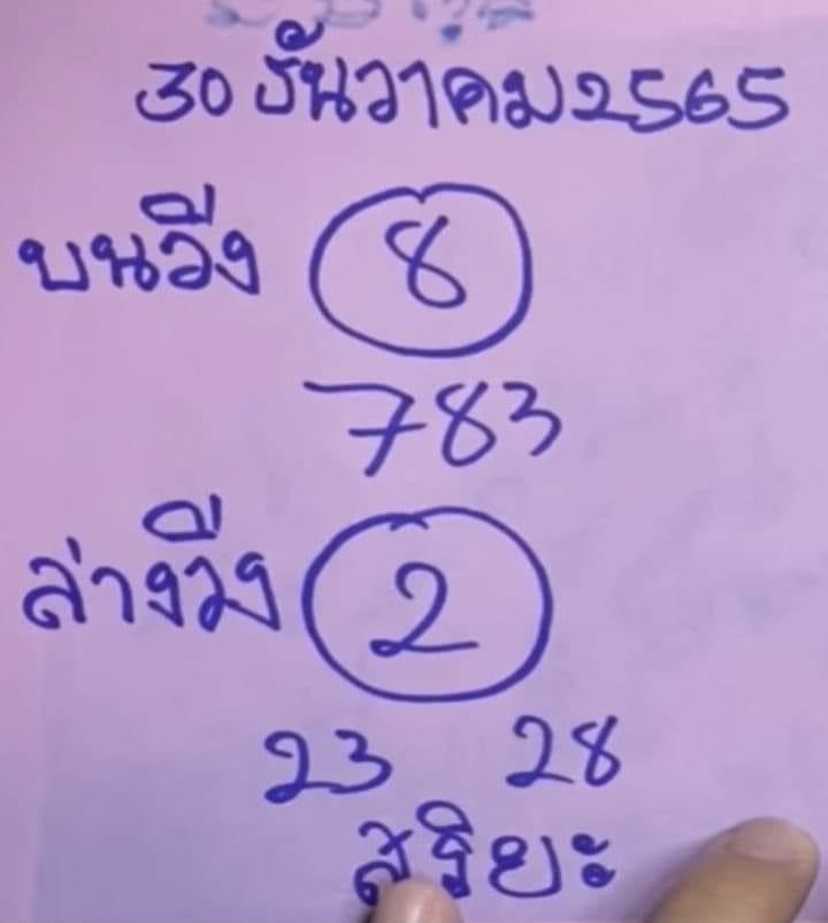 30 ธันวาคม2565
บนวิ่ง 8
783
ล่างวิ่ง 2
23 28